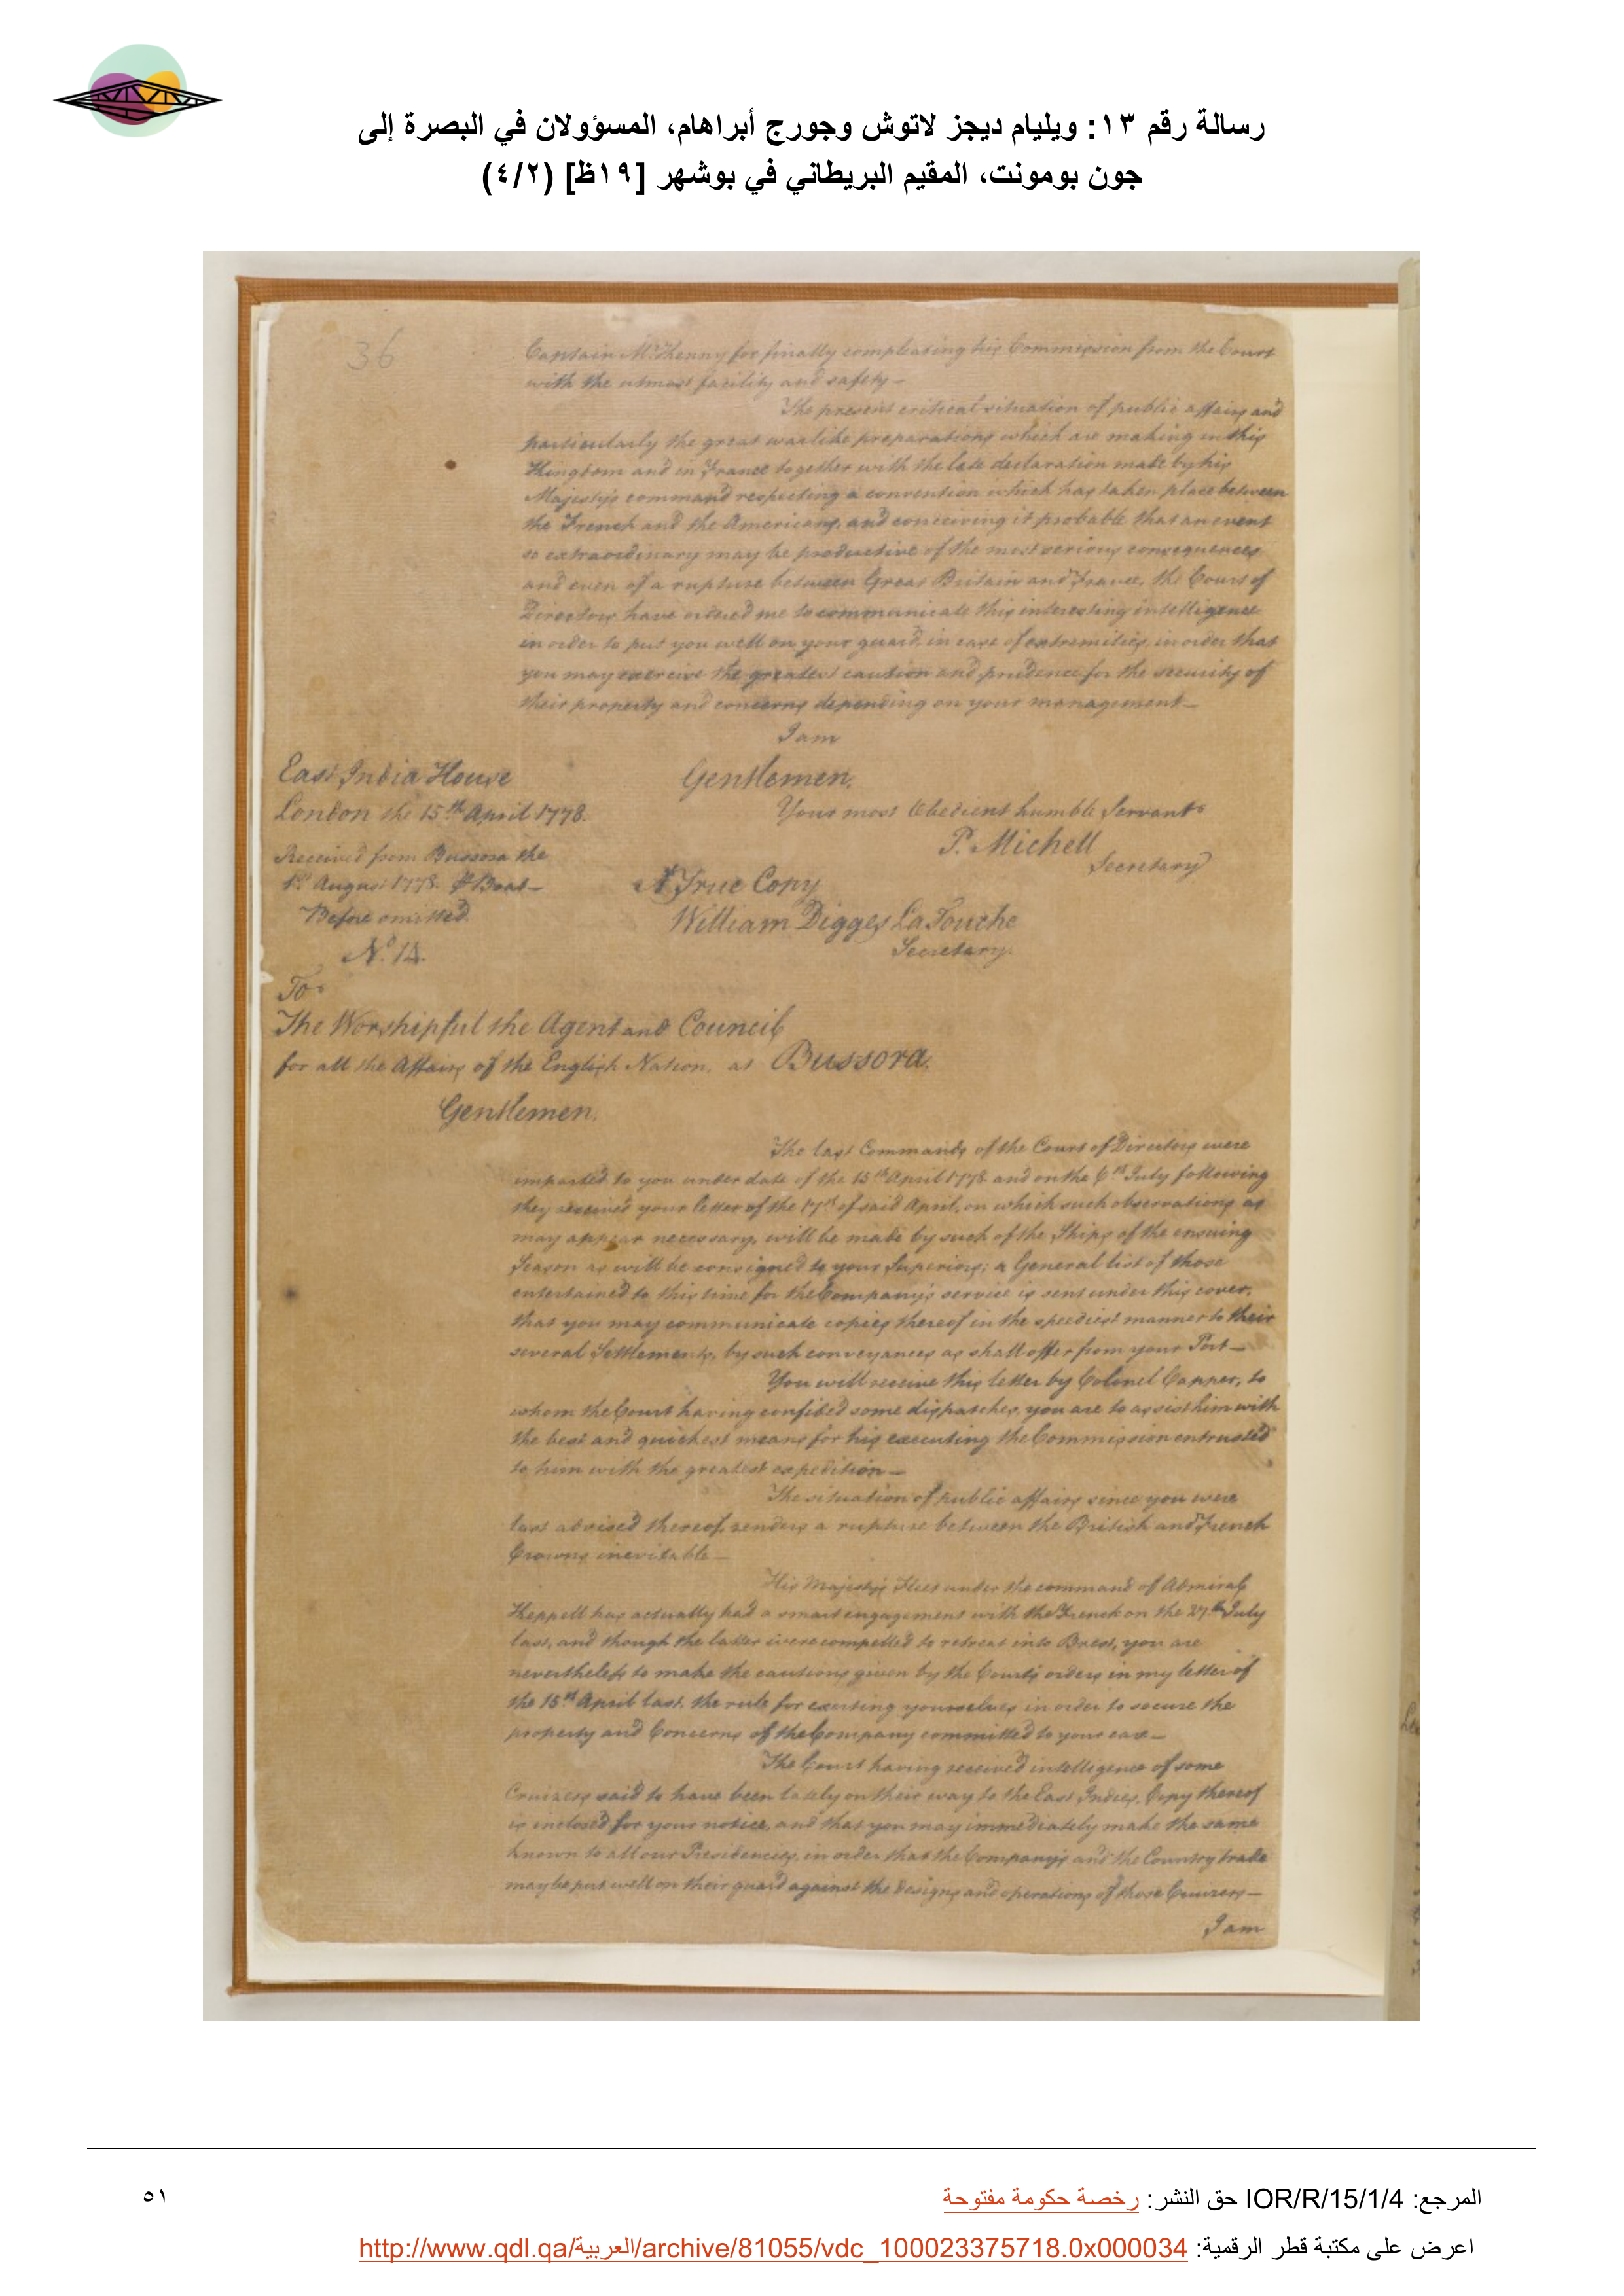 رسالة رقم ١٣: ويليام ديجز لاتوش وجورج أبراهام، المسؤولان في البصرة إلى
جون بومونت، المقيم البريطاني في بوشهر [١٩ظ] (٤/٢)
36
Captain McKenny for finally compleating his Commission from the Court
with the utmost facility and safety —
The present critical situation of public affairs and
particularly the great warlike preparations which are making in this
Kingdom and in France together with the late declaration made by his
Majesty's command respecting a convention which has taken place between
the French and the Americans, and conceiving it probable that an event
so extraordinary may be productive of the most serious consequences
and even of a rupture between Great Britain and France, the Court of
Directors have ordered me to communicate this interesting intelligence
in order to put you well on your guard, in case of extremities, in order that
you may exercise the greatest caution and prudence for the security of
their property and concerns depending on your management —
I am
East India House
Gentlemen,
London the 15th April 1778.
Your most Obedient humble Servants
P. Michell
Secretary
Received from Bussora the
1st August 1778. Boat —
A True Copy
Before omitted.
William Digges LaTouche
Secretary.
No. 14.
To
The Worshipful the Agent and Council
for all the Affairs of the English Nation, at Bussora.
Gentlemen.
The last Commands of the Court of Directors were
imparted to you under date of the 15th April 1778 and on the July following
they received your letter of the 17th of said April, on which such observations as
may appear necessary, will be made by such of the Ships of the ensuing
Season as will be consigned to your Superiors; a General list of those
entertained to this time for the Company's service is sent under this cover,
that you may communicate copies thereof in the speediest manner to their
several Settlements, by such conveyances as shall offer from your Port —
You will receive this letter by Colonel Capper, to
whom the Court having confided some dispatches, you are to assist him with
the best and quickest means for his executing the Commission entrusted
to him with the greatest expedition —
The situation of public affairs since you were
last advised thereof, renders a rupture between the British and French
Crowns inevitable —
His Majesty's Fleet under the command of Admiral
Keppell has actually had a smart engagement with the French on the 27th July
last, and though the latter were compelled to retreat into Brest, you are
nevertheless to make the cautions given by the Court's orders in my letter of
the 15th April last, the rule for exerting yourselves in order to secure the
property and Concerns of the Company committed to your care —
The Court having received intelligence of some
Cruizers said to have been lately on their way to the East Indies, Copy thereof
is inclosed for your notice, and that you may immediately make the same
known to all our Presidencies, in order that the Company's and the Country trade
may be put well on their guard against the designs and operations of those Cruizers —
I am
المرجع: IOR/R/15/1/4 حق النشر: رخصة حكومة مفتوحة
٥١
اعرض على مكتبة قطر الرقمية: http://www.qdl.qa/العربية/archive/81055/vdc_100023375718.0x000034